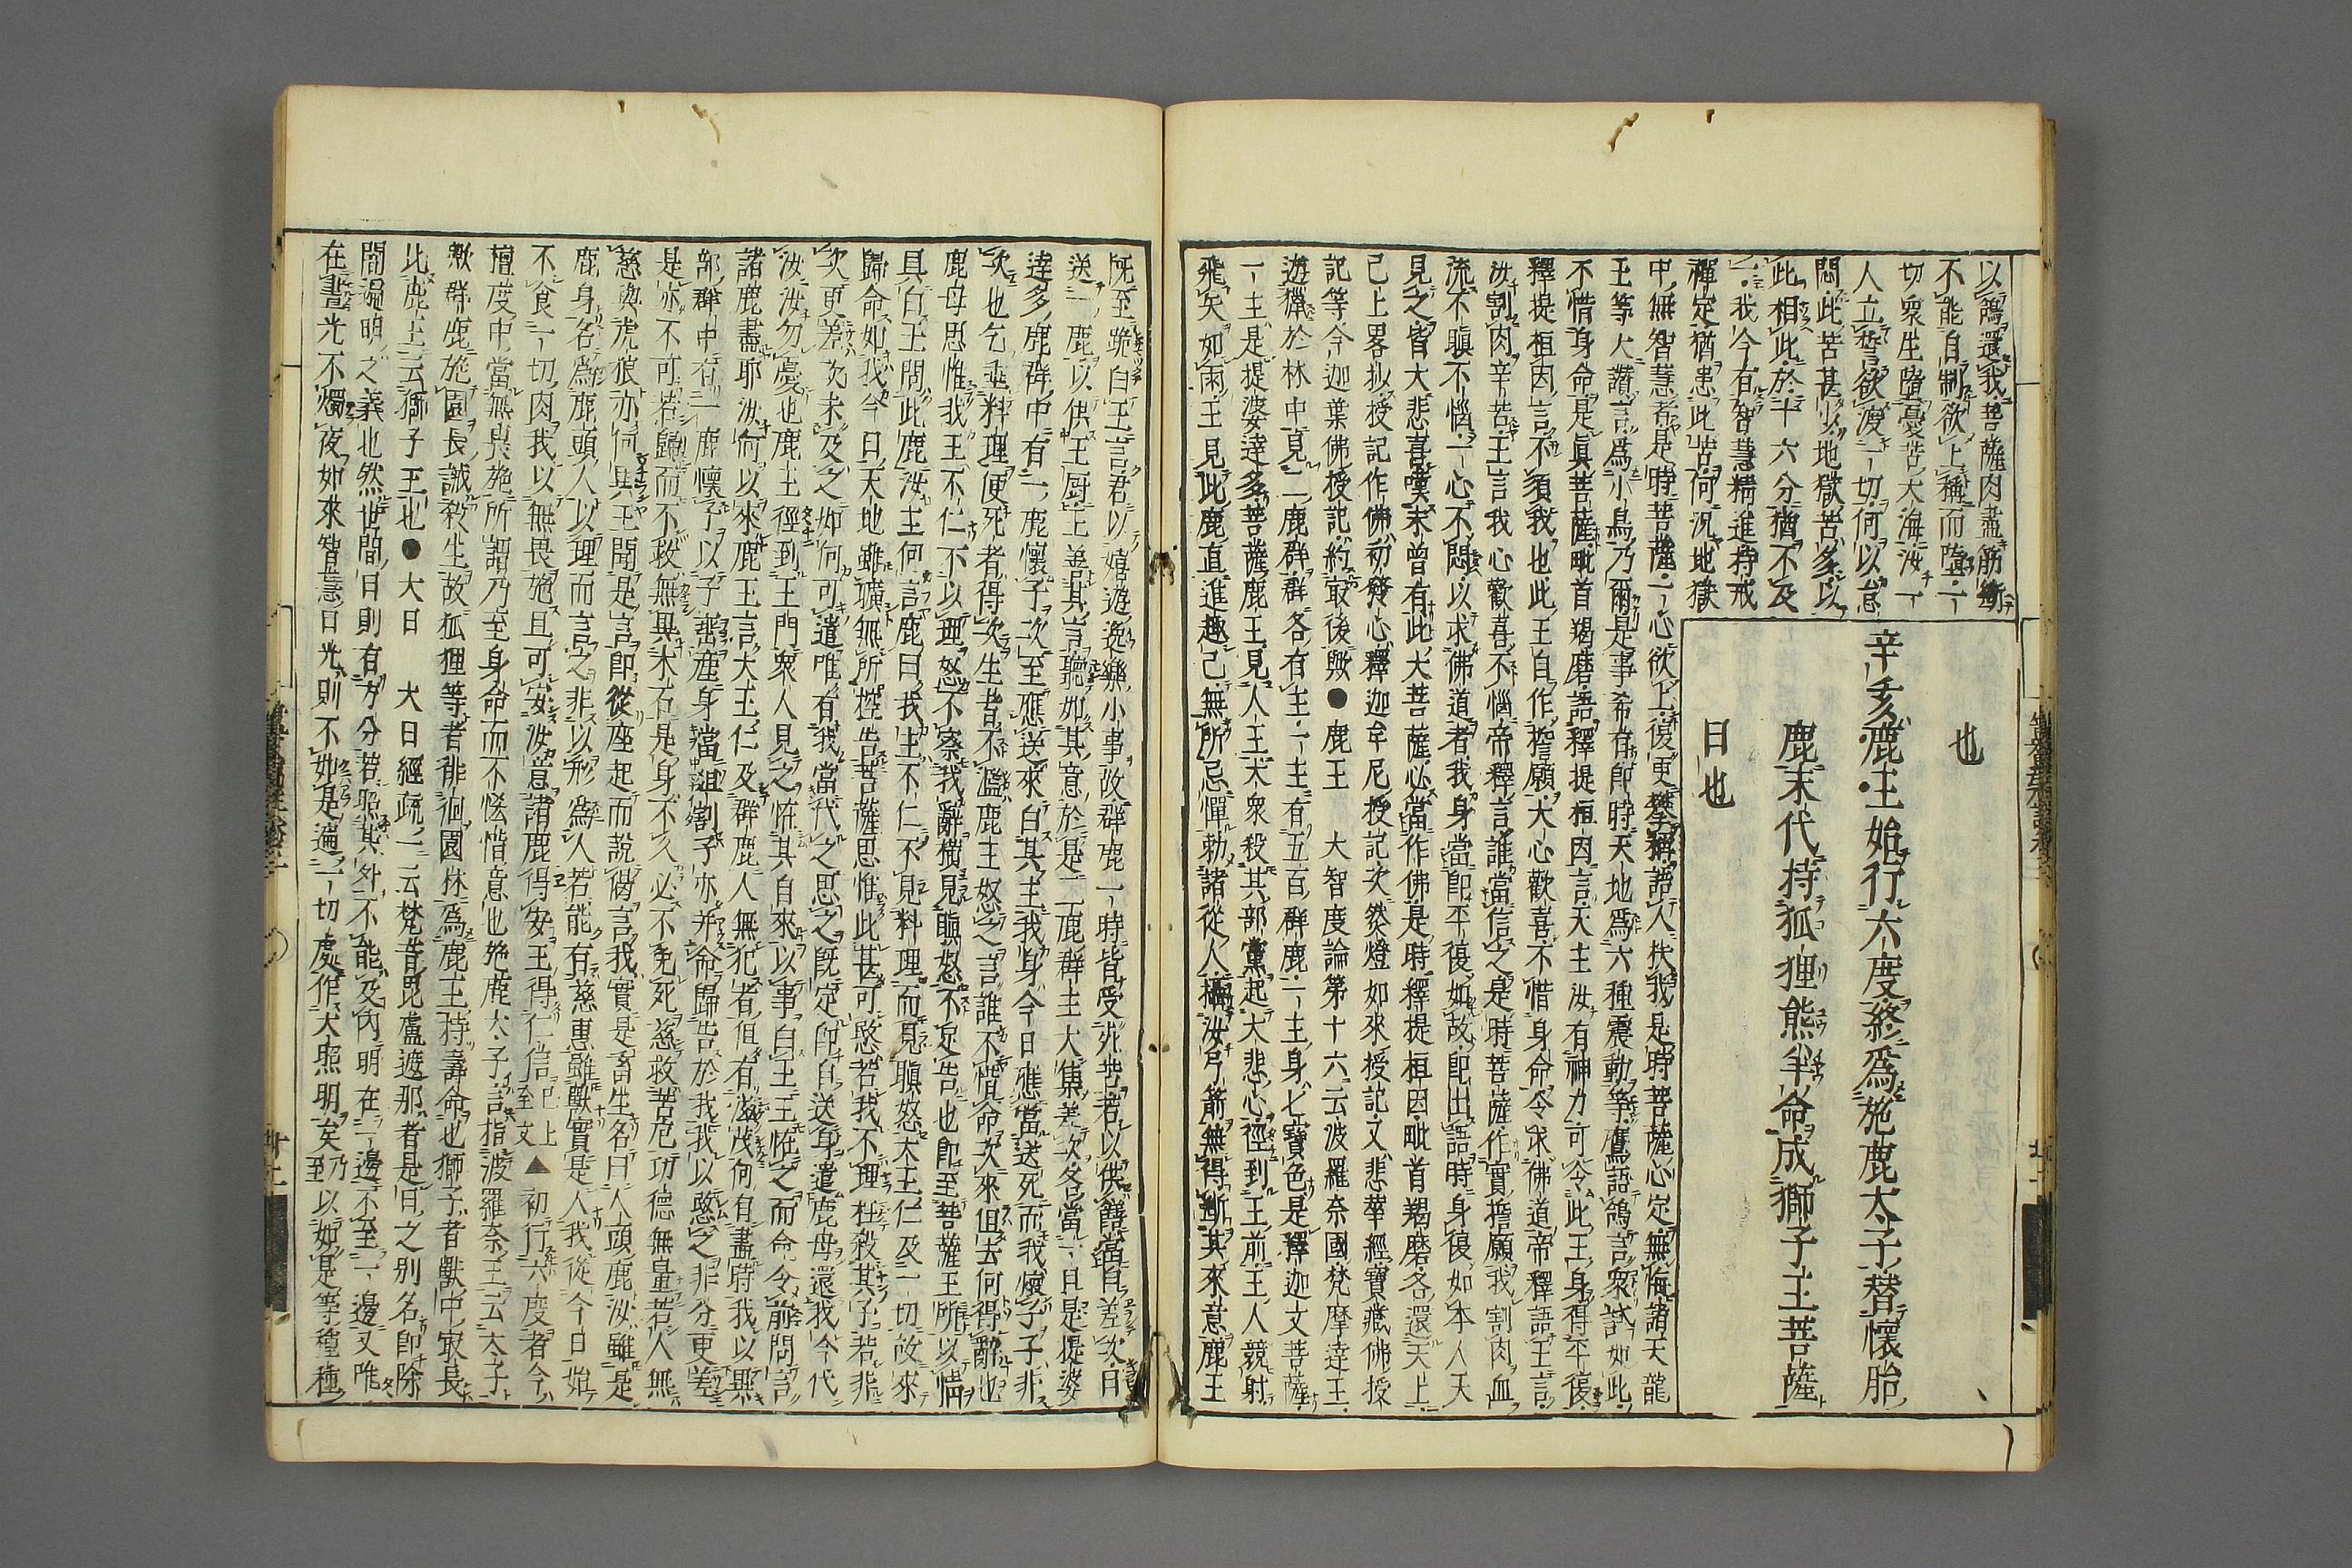 以鴿還我菩薩肉盡筋斷
不能自制欲上稱而墮一
切衆生墮憂苦大海汝一
人立誓欲渡一切何以怠
悶此苦甚少地獄苦多以
此相此於十六分猶不及
一我今有智慧精進持戒
禪定猶患此苦何況地獄
也
辛亥鹿王始行六度終爲施鹿太子替懷胎
鹿末代持狐狸熊羊命成獅子王菩薩
日也
中無智慧者是時菩薩一心欲上復更攀稱語人扶我是時菩薩心定無悔諸天龍
王等大讚言爲小鳥乃爾是事希有即時天地爲六種震動等鷹語鴿言衆試如此
不惜身命是眞菩薩毗首羯磨語釋提桓因言天主汝有神力可令此王身得平復
釋提桓因言不須我也此王自作誓願大心歡喜不惜身命令求佛道帝釋語王言
汝割肉辛苦王言我心歡喜不惱帝釋言誰當信之是時菩薩作實誓願我割肉血
流不瞋不惱一心不悶以求佛道者我身當即平復如故即出語時身復如本人天
見之皆大悲喜嘆未曾有此大菩薩必當作佛是時釋提桓因毗首羯磨各還天上
已上畧抄授記作佛初發心釋迦牟尼授記次然燈如來授記文悲華經寶藏佛授
記等今迦葉佛授記約㝡後歟●鹿王　大智度論第十六云波羅奈國梵摩達王
遊獵於林中見二鹿群群各有主一主有五百群鹿一主身七寶色是釋迦文菩薩
一主是提婆達多菩薩鹿王見人王大衆殺其部黨起大悲心徑到王前王人競射
飛矢如雨王見此鹿直進趣己無所忌憚勅諸從人攝汝弓箭無得斷其來意鹿王
既至跪白王言君以嬉遊逸樂小事故群鹿一時皆受死苦若以供饍當自差次日
送一鹿以供王厨王善其言聽如其意於是二鹿群主大集差次各當一日是提婆
達多鹿群中有一鹿懷子次至應送來白其主我身今日應當送死而我懷子子非
次也乞垂料理使死者得次生者不濫鹿王怒之言誰不惜命次來但去何得辭也
鹿母思惟我王不仁不以理怒不察我辭横見瞋怒不足告也即至菩薩王所以情
具白王問此鹿汝主何言鹿曰我主不仁不見料理而見瞋怒大王仁及一切故來
歸命如我今日天地雖曠無所控告菩薩思惟此甚可愍若我不理枉殺其子若非
次更差次未及之如何可遣唯有我當代之思之既定即自送身遣鹿母還我今代
汝汝勿憂也鹿王徑到王門衆人見之恠其自來以事白王王恠之而命令前問言
諸鹿盡耶汝何以來鹿王言大王仁及群鹿人無犯者但有滋茂何有盡時我以異
部群中有一鹿懷子以子垂產身當俎割子亦并命歸告於我我以愍之非分更差
是亦不可若歸而不救無異木石是身不久必不免死慈救苦厄功德無量若人無
慈與虎狼亦何異王聞是言即從座起而說偈言我實是畜生名曰人頭鹿汝雖是
鹿身名爲鹿頭人以理而言之非以形爲人若能有慈惠雖獸實是人我從今日始
不食一切肉我以無畏施且可安汝意諸鹿得安王得仁信已上至文▲初行六度者今
檀度中當無畏施所謂乃至身命而不悋惜意也施鹿太子言指波羅奈王云太子
歟群鹿施園長誡殺生故狐狸等者徘徊園林爲鹿王持壽命也獅子者獸中㝡長
比鹿王云獅子王也●大日　大日經疏一云梵音毘盧遮那者是日之別名即除
闇遍明之義也然世間日則有方分若照其外不能及内明在一邊不至一邊又唯
在晝光不燭夜如來智慧日光則不如是遍一切處作大照明矣乃至以如是等種種